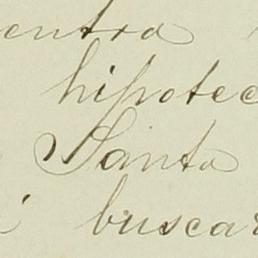 entra
hipotec
Santa
buscar